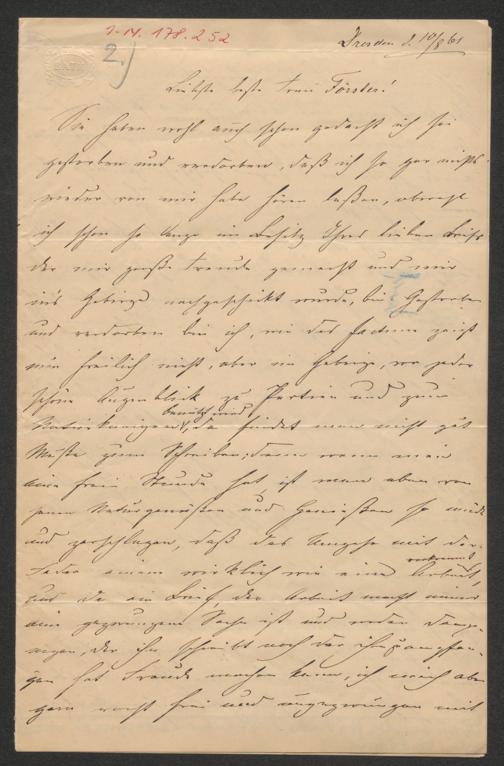 I. N. 178.252
2.)
Dresden d. 10/8 61
Liebste beste Frau Förster!
Sie haben wohl auch schon gedacht ich sei
gestorben und verdorben, daß ich so gar nichts
wieder von mir habe hören laßen, obwohl
ich schon so lange im Besitz Ihres lieben Briefs
der mir große Freude gemacht und mir
ins Gebirge nachgeschickt wurde, bin. Gestorben
und verdorben bin ich, wie das Factum zeigt
nun freilich nicht, aber im Gebirge, wo jeder
schöne Augenblick zu Partien und zum
benützt wird
da findet man nicht gut
Muße zum Schreiben; denn wenn man
eine freie Stunde hat ist man eben von
jenen Naturgenüßen und Genießen so müde
und zerschlagen, daß das Umgehn mit der
Feder einem wirklich wie eine Arbeit
vorkommt
und da ein Brief, der Arbeit macht immer
eine gezwungene Sache ist und weder
der ihn schreibt noch der ihn
hat Freude machen kann, ich mich aber
gern recht frei und ungezwungen mit